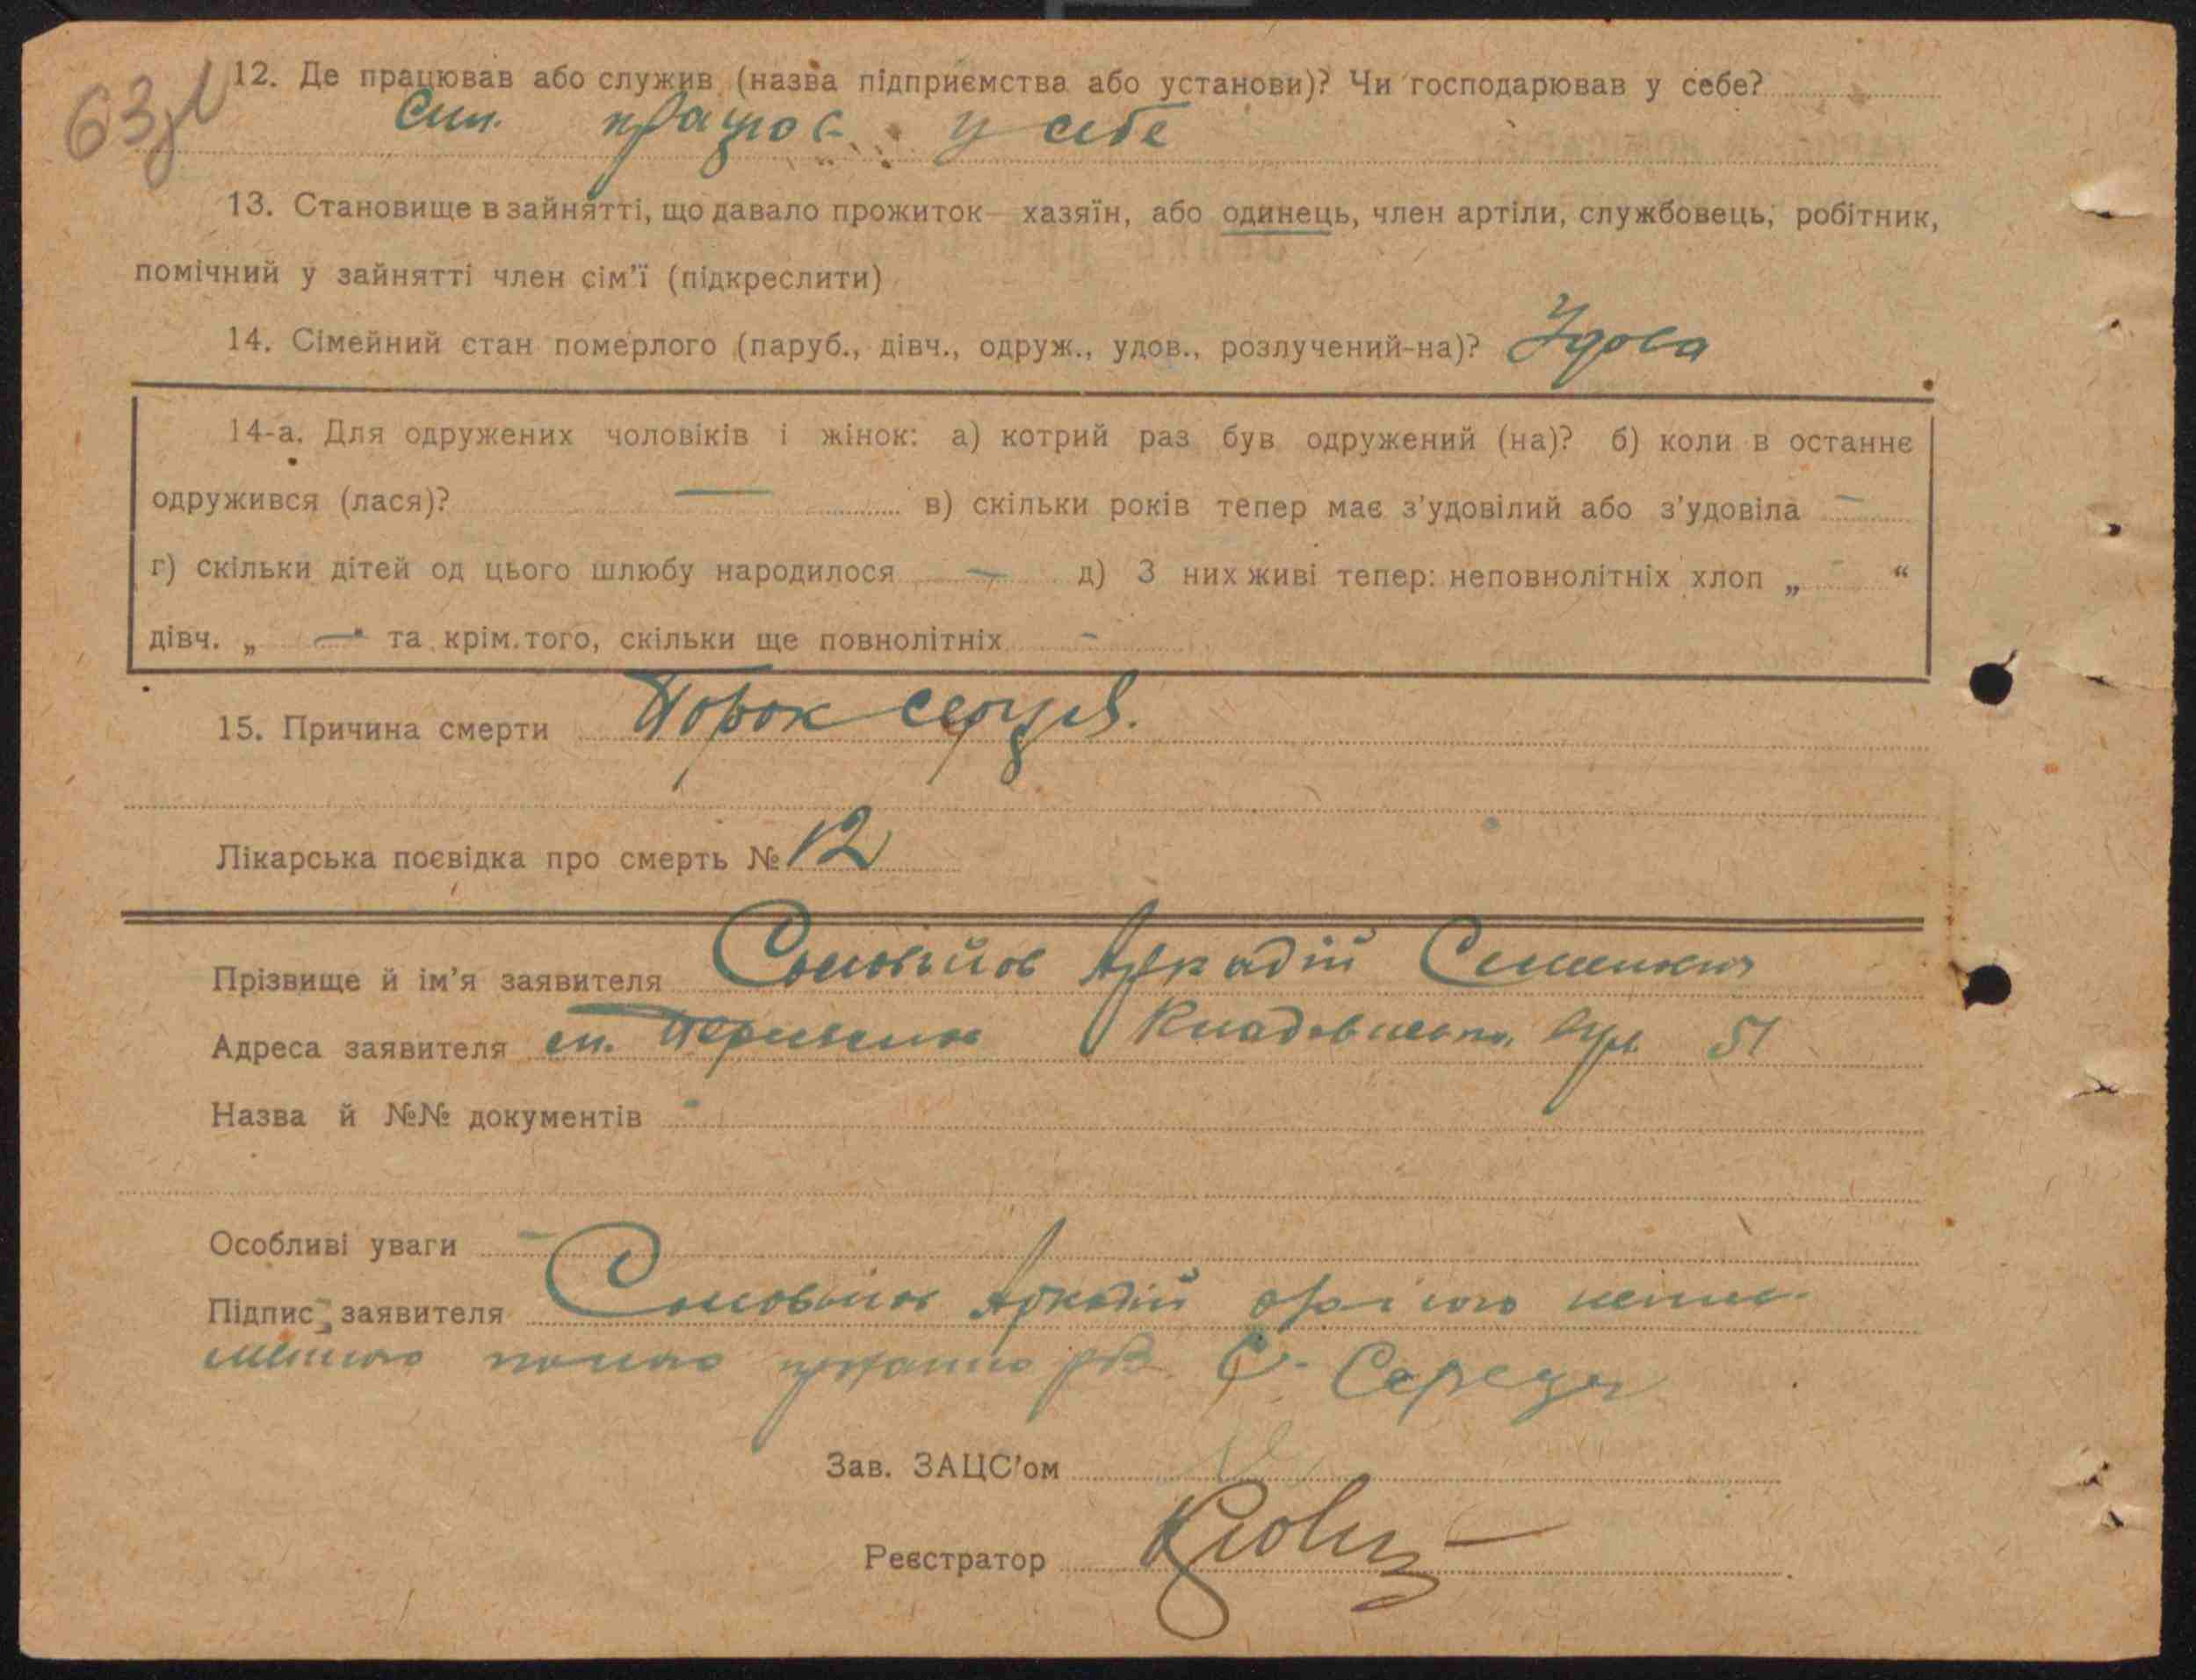 63
12. Де працював або служив (назва підприємства або установи)? Чи господарював у себе?
Син працює у себе
13. Становище в зайнятті, що давало прожиток— хазяїн, або одинець, член артіли, службовець, робітник,
помічний у зайнятті член сім'ї (підкреслити)
14. Сімейний стан померлого (паруб., дівч., одруж., удов., розлучений-на)? Удова
14-а. Для одружених чоловіків і жінок: а) котрий раз був одружений (на)? б) коли в останнє
одружився (лася)? — в) скільки років тепер має з'удовілий або з'удовіла —
г) скільки дітей од цього шлюбу народилося — д) З них живі тепер: неповнолітніх хлоп „ — “
дівч. „ — " та крім.того, скільки ще повнолітніх —
15. Причина смерти Порок серця.
Лікарська посвідка про смерть № 12
Прізвище й ім'я заявителя Соловйов Аркадій
Адреса заявителя ст. вул. 51
Назва й №№ документів -
Особливі уваги —
Підпис заявителя Соловйов Аркадій
С. Середа
Зав. ЗАЦС'ом
Реєстратор